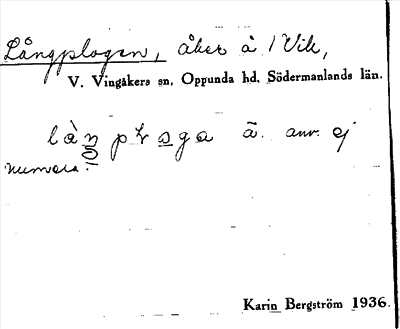 Långplogen, åker å 1 Vik,
V. Vingåkers sn, Oppunda hd, Södermanlands län.
ä. anv. ej
numera.
Karin Bergström 1936.